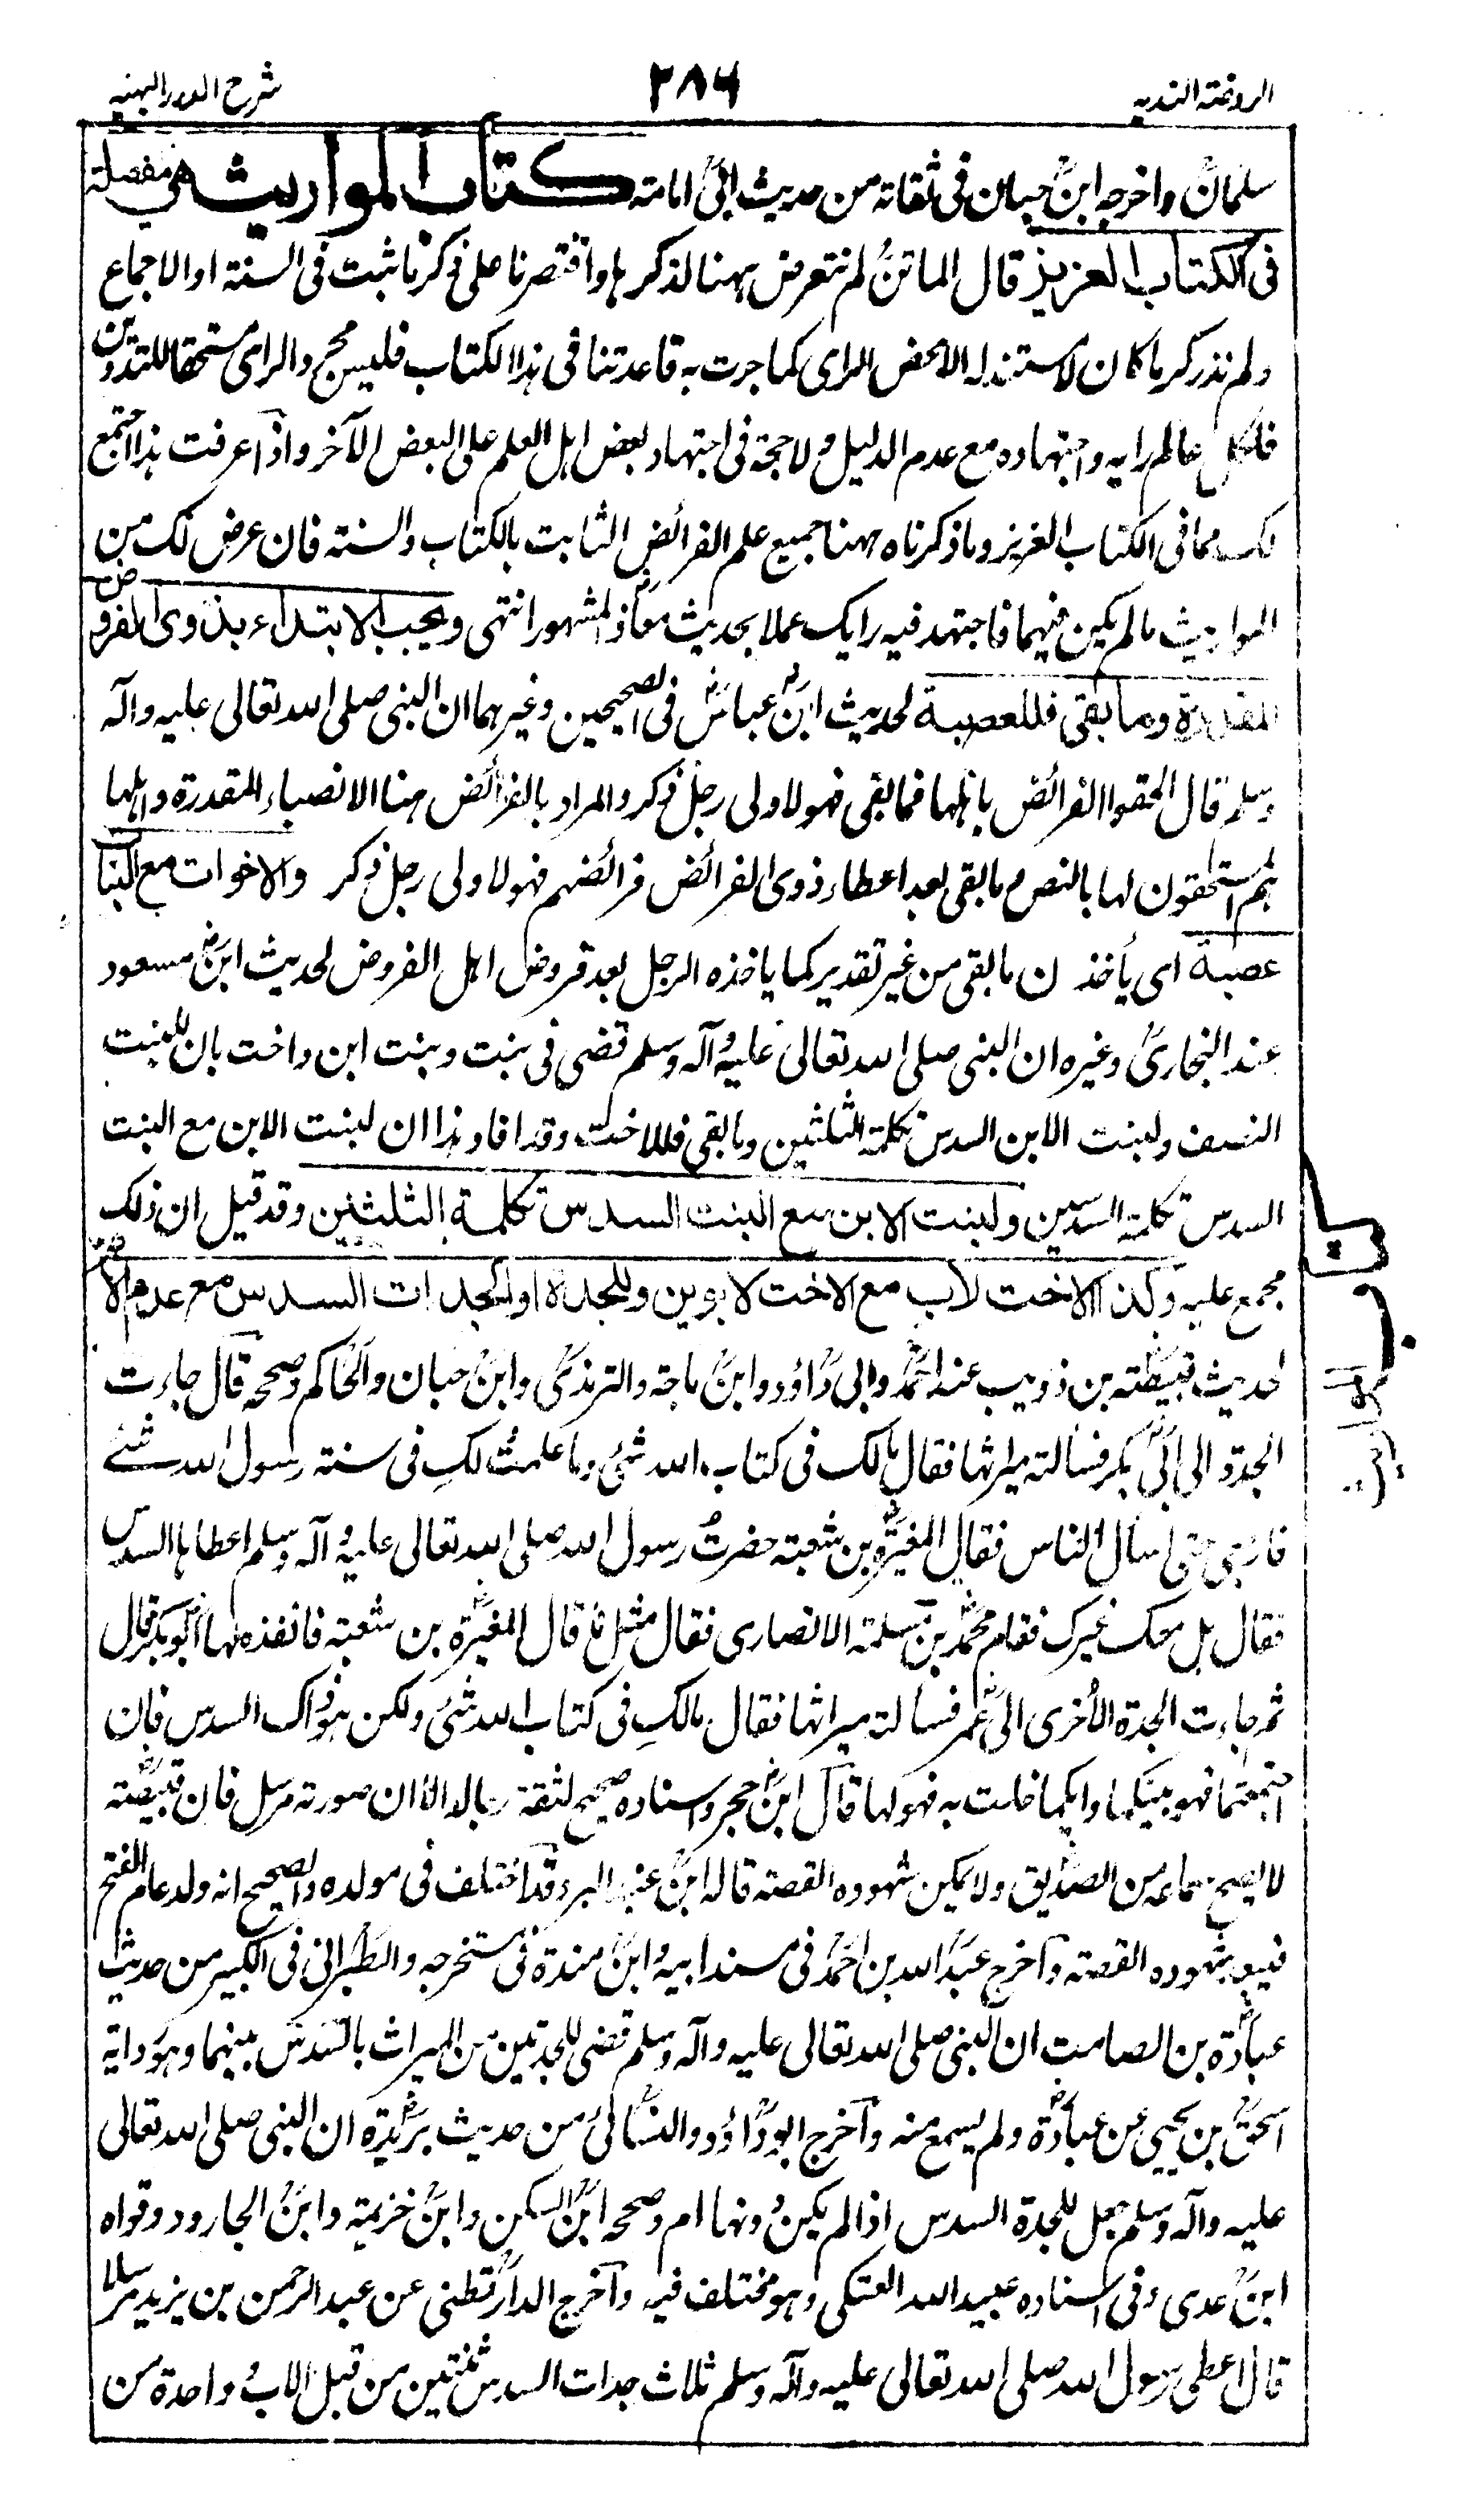 الروضة الندیه
۲۸۶
شرح الدرر البهیه
سلمان واخرجه ابن حبان فی ثقاته من حدیث ابی امامة کتاب المواریث هی مفصلة
فی الکتاب العزیز قال الماتن لم نتعرض ههنا لذکرها واقتصرنا علی ذکر ما ثبت فی السنة او الاجماع
ولم نذکر ما کان لا مستند له الا محض الرای کما جرت به قاعدتنا فی هذا الکتاب فلیس مجرد الرای مستحقا للتدوین
فلکل عالم رایه واجتهاده مع عدم الدلیل ولا حجة فی اجتهاد بعض اهل العلم علی البعض الآخر واذا عرفت هذا اجتمع
لک مما فی الکتاب العزیز وما ذکرناه ههنا جمیع علم الفرائض الثابت بالکتاب والسنة فان عرض لک من
المواریث ما لم یکن فیهما فاجتهد فیه رایک عملا بحدیث معاذ المشهور انتهی ویجب الابتداء بذوی الفروض
المقدرة وما بقی فللعصبة لحدیث ابن عباس فی الصحیحین وغیرهما ان النبی صلی الله تعالی علیه وآله
وسلم قال الحقوا الفرائض باهلها فما بقی فهو لاولی رجل ذکر والمراد بالفرائض هنا الانصباء المقدرة واهلها
هم المستحقون لها بالنص وما بقی بعد اعطاء ذوی الفرائض فرائضهم فهو لاولی رجل ذکر والاخوات مع البنات
عصبة ای یأخذن ما بقی من غیر تقدیر کما یاخذه الرجل بعد فروض اهل الفروض لحدیث ابن مسعود
عند البخاری وغیره ان النبی صلی الله تعالی علیه وآله وسلم قضی فی بنت وبنت ابن واخت بان للبنت
النصف ولبنت الابن السدس تکملة الثلثین وما بقی فللاخت وقد افاد هذا ان لبنت الابن مع البنت
السدس تکملة السدسین ولبنت الابن مع البنت السدس تکملة الثلثین وقد قیل ان ذلک
مجمع علیه وکذا الاخت لاب مع الاخت لابوین وللجدة او الجدات السدس مع عدم الام
لحدیث قبیصة بن ذویب عند احمد وابی داؤد وابن ماجة والترمذی وابن حبان والحاکم وصححه قال جاءت
الجدة الی ابی بکر فسألته میراثها فقال مالک فی کتاب الله شئ وما علمت لک فی سنة رسول الله شئ
فارجعی حتی اسأل الناس فقال المغیرة بن شعبة حضرت رسول الله صلی الله تعالی علیه وآله وسلم اعطاها السدس
فقال هل معک غیرک فقام محمد بن مسلمة الانصاری فقال مثل ما قال المغیرة بن شعبة فانفذه لها ابو بکر قال
ثم جاءت الجدة الأخری الی عمر فسألته میراثها فقال مالک فی کتاب الله شئ ولکن هو ذاک السدس فان
اجتمعتما فهو بینکما وایکما خلت به فهو لها قال ابن حجر واسناده صحیح لثقة رجاله الا ان صورته مرسل فان قبیصة
لا یصح سماعه من الصدیق ولا یمکن شهوده القصة قاله ابن عبد البر وقد اختلف فی مولده والصحیح انه ولد عام الفتح
فیبعد شهوده القصة وآخرج عبد الله بن احمد فی مسند ابیه وابن مندة فی مستخرجه والطبرانی فی الکبیر من حدیث
عبادة بن الصامت ان النبی صلی الله تعالی علیه وآله وسلم قضی للجدتین من المیراث بالسدس بینهما وهو روایة
اسحق بن یحیی عن عبادة ولم یسمع منه وآخرج ابو داؤد والنسائی من حدیث بریدة ان النبی صلی الله تعالی
علیه وآله وسلم جعل للجدة السدس اذا لم یکن دونها ام وصححه ابن السکن وابن خزیمة وابن الجارود وقواه
ابن عدی وفی اسناده عبید الله العتکی وهو مختلف فیه وآخرج الدارقطنی عن عبد الرحمن بن یزید مرسلا
قال اعطی رسول الله صلی الله تعالی علیه وآله وسلم ثلاث جدات السدس ثنتین من قبل الاب وواحدة من